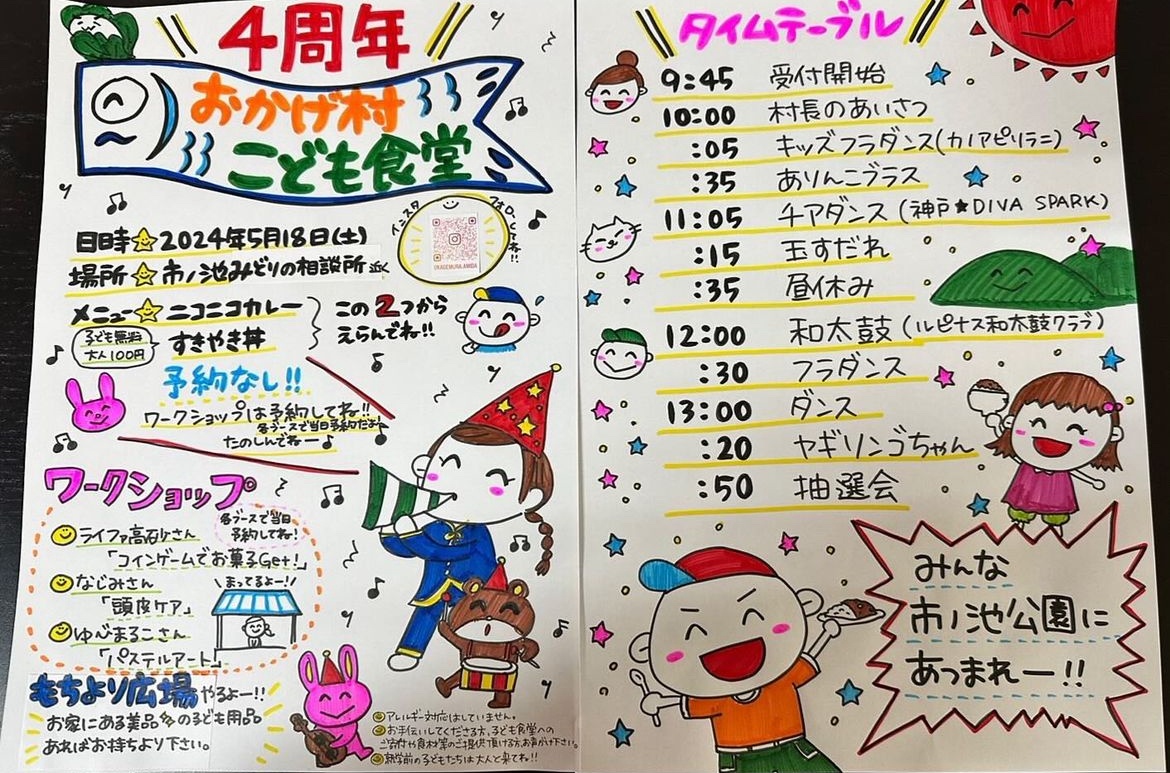 4周年
おかげ村
こども食堂
インスタ
フォローしてね!!
OKAGEMURA.AMIDA
日時 2024年5月18日(土)
場所 市ノ池みどりの相談所 近く
メニュー ニコニコカレー
すきやき丼
この2つから
えらんでね!!
子ども無料
大人100円
予約なし!!
ワークショップは予約してね!!
各ブースで当日予約だよ
たのしんでねー♪
ワークショップ
各ブースで当日
予約してね!
ライファ高砂さん
「コインゲームでお菓子Get!」
なじみさん
「頭皮ケア」
ゆべまるこさん
「パステルアート」
まってるよー!!
もちより広場 やるよー!!
お家にある美品の子ども用品
あればお持ちより下さい。
アレルギー対応はしていません。
お手伝いしてくださる方、子ども食堂への
ご寄付や食材等のご提供頂ける方、お声かけ下さい。
就学前の子どもたちは大人と来てね!!
タイムテーブル
9:45 受付開始
10:00 村長のあいさつ
:05 キッズフラダンス(カノアピリラニ)
:35 ありんこブラス
11:05 チアダンス (神戸★DIVA SPARK)
:15 玉すだれ
:35 昼休み
12:00 和太鼓 (ルピナス和太鼓クラブ)
:30 フラダンス
13:00 ダンス
:20 ヤギリンゴちゃん
:50 抽選会
みんな
市ノ池公園に
あつまれー!!